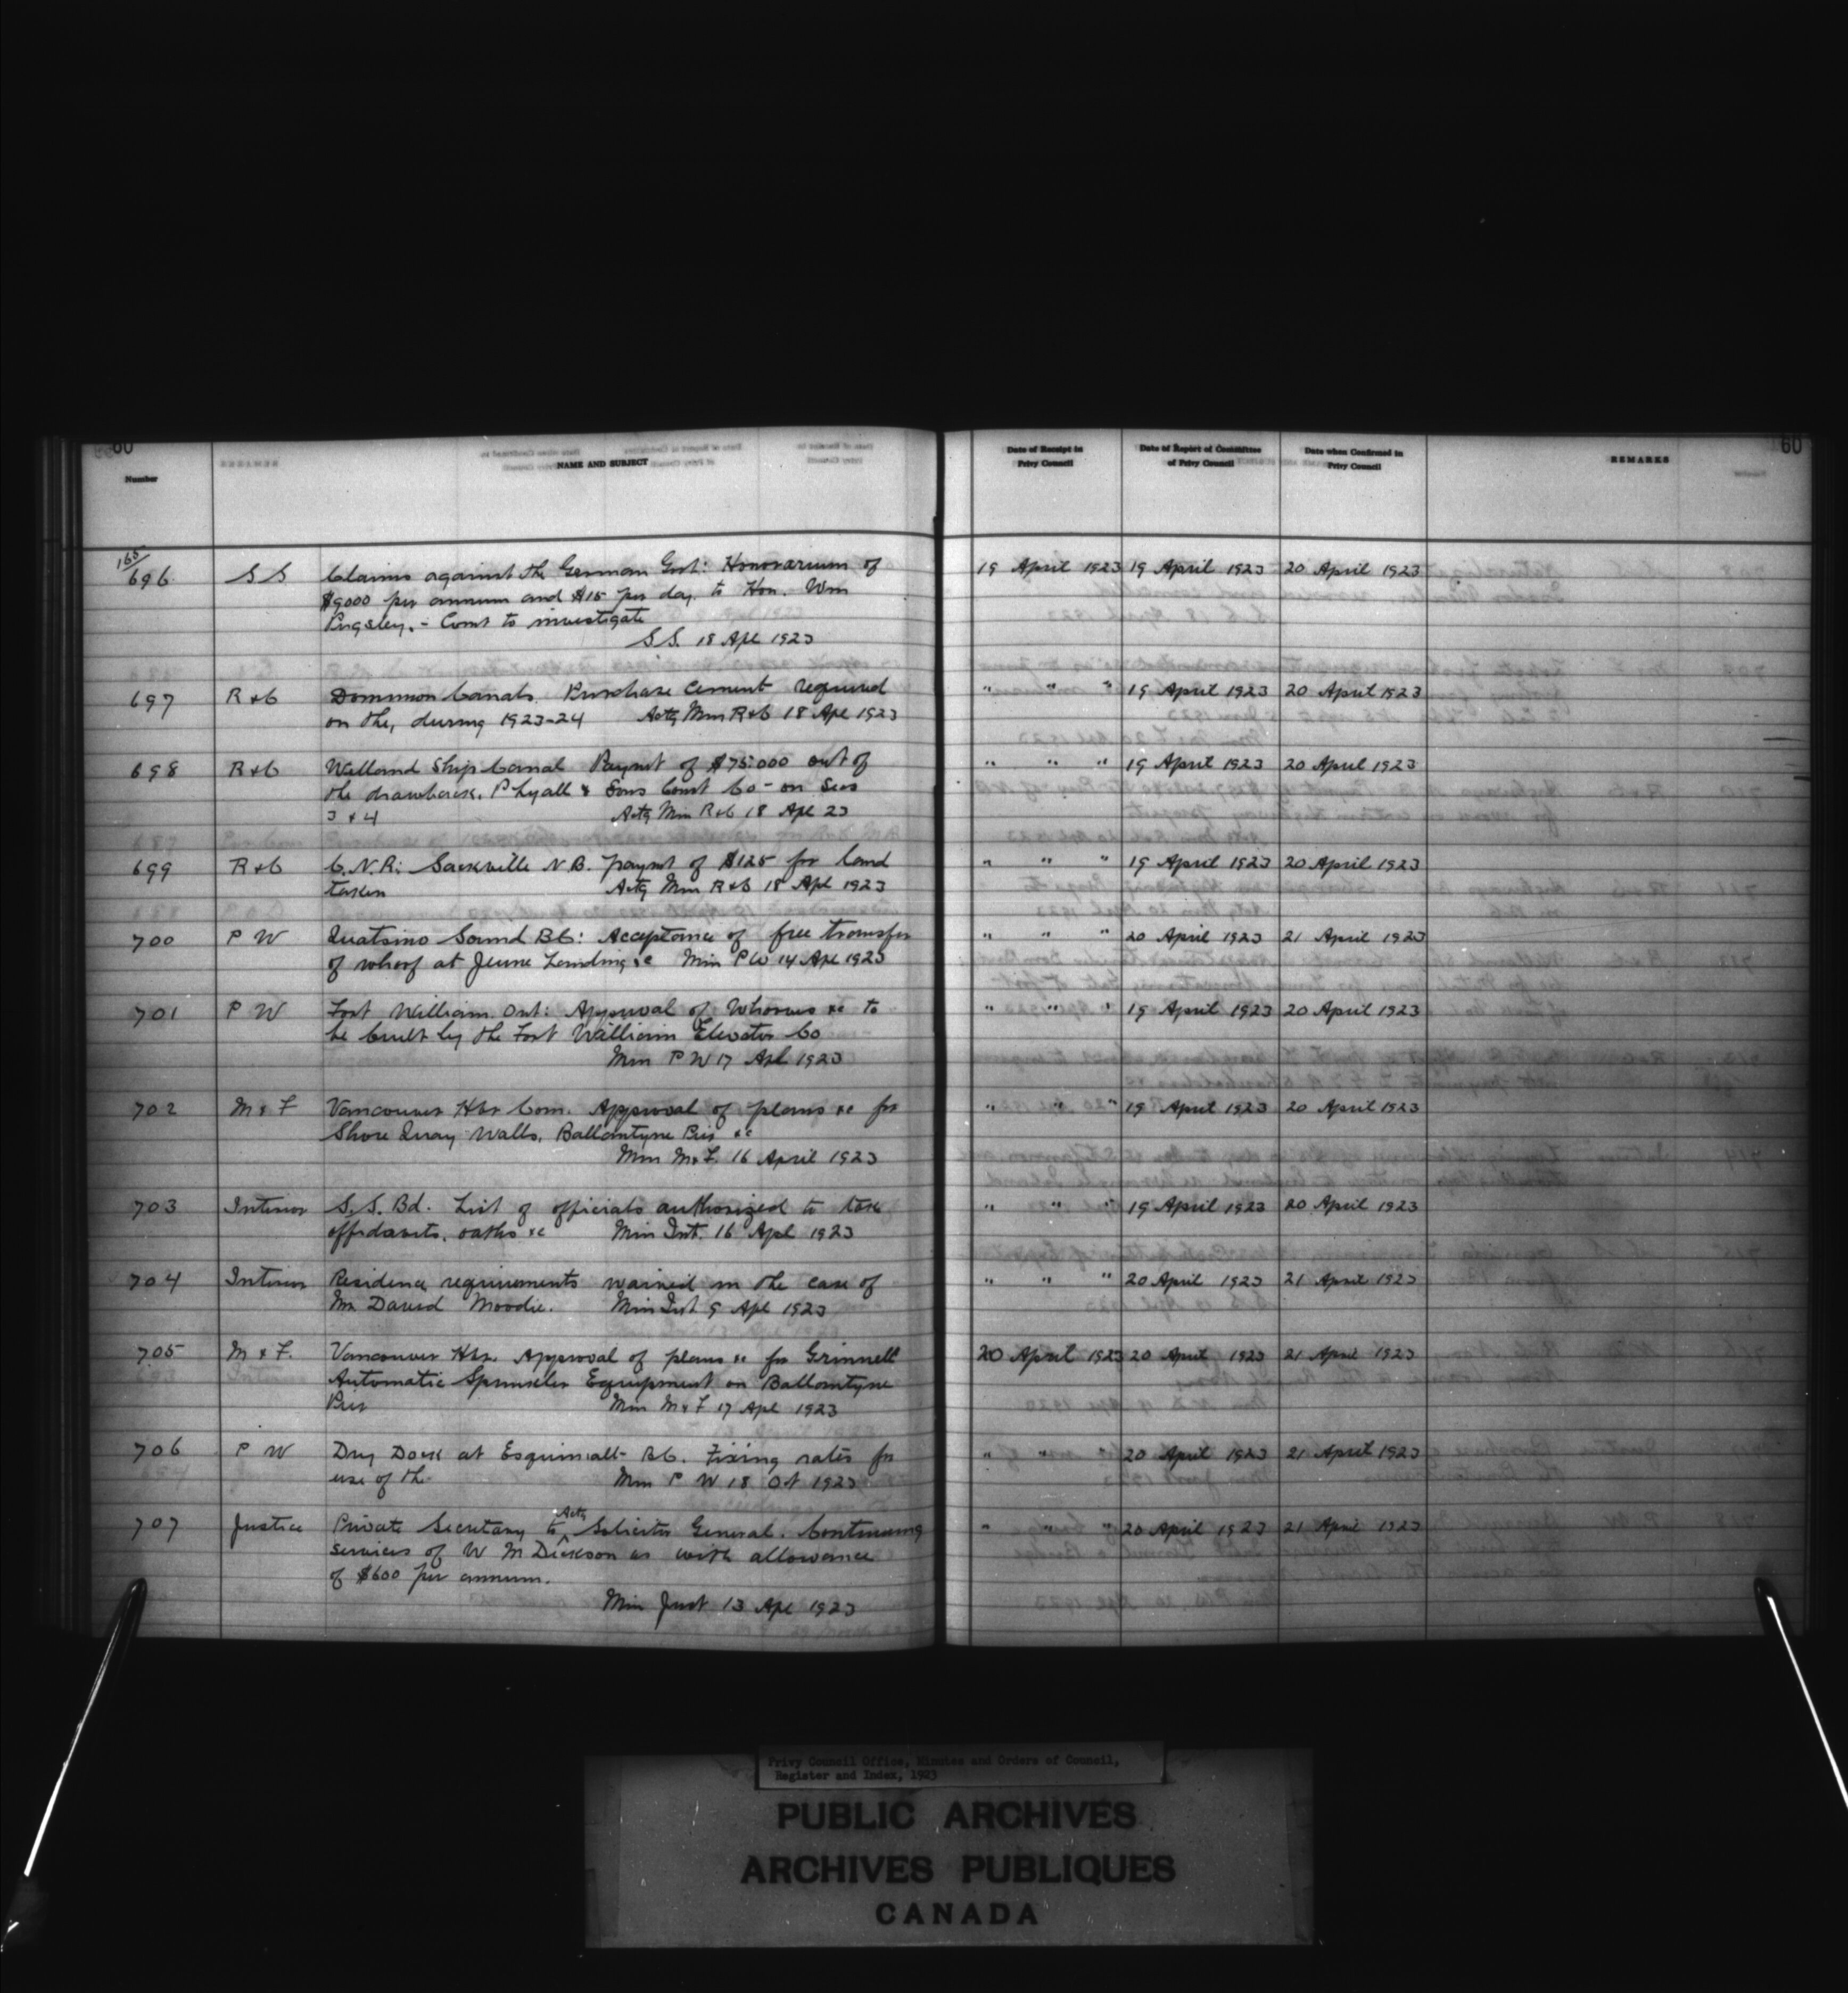 60
60
Number
NAME AND SUBJECT
Date of Receipt in Privy Council
Date of Report of Committee of Privy Council
Date when Confirmed in Privy Council
REMARKS
165/
696 S S Claims against the German Govt: Honorarium of 19 April 1923 19 April 1923 20 April 1923
$9000 per annum and $15 per day. to Hon. Wm
Pugsley. - Comr to investigate
S.S. 18 Apl 1923
697 R & C Dominion Canals. Purchase cement required " " " 19 April 1923 20 April 1923
on the, during 1923-24 Actg Min R&C 18 Apl 1923
698 R & C Welland Ship Canal Paymt of $75.000 out of " " " 19 April 1923 20 April 1923
the drawback. P Lyall & Sons Const Co - on Secs
3 & 4 Actg Min R&C 18 Apl 23
699 R & C C.N.R: Sackville N.B. paymt of $125 for land " " " 19 April 1923 20 April 1923
taken Actg Min R&C 18 Apl 1923
700 P W Quatsino Sound BC: Acceptance of free transfer " " " 20 April 1923 21 April 1923
of wharf at Jeune Landing &c Min PW 14 Apl 1923
701 P W Fort William Ont: Approval of Wharves &c to " " " 19 April 1923 20 April 1923
be built by the Fort William Elevator Co
Min P W 17 Apl 1923
702 M & F Vancouver Hbr Com. Approval of plans &c for " " " 19 April 1923 20 April 1923
Shore Quay Walls, Ballantyne Pier &c
Min M & F. 16 April 1923
703 Interior S.S. Bd. List of officials authorized to take " " " 19 April 1923 20 April 1923
affidavits, oaths &c Min Int. 16 Apl 1923
704 Interior Residence requirements waived in the case of " " " 20 April 1923 21 April 1923
Mr David Moodie. Min Int 9 Apl 1923
705 M & F. Vancouver Hbr. Approval of plans &c for Grinnell 20 April 1923 20 April 1923 21 April 1923
Automatic Sprinkler Equipment on Ballantyne
Pier Min M & F 17 Apl 1923
706 P W Dry Dock at Esquimalt - BC. Fixing rates for " " " 20 April 1923 21 April 1923
use of the Min P W 18 Ot 1923
707 Justice Private Secretary to Actg Solicitor General. Continuing " " " 20 April 1923 21 April 1923
services of W M Dickson as with allowance
of $600 per annum.
Min Just 13 Apl 1923
Privy Council Office, Minutes and Orders of Council,
Register and Index, 1923
PUBLIC ARCHIVES
ARCHIVES PUBLIQUES
CANADA